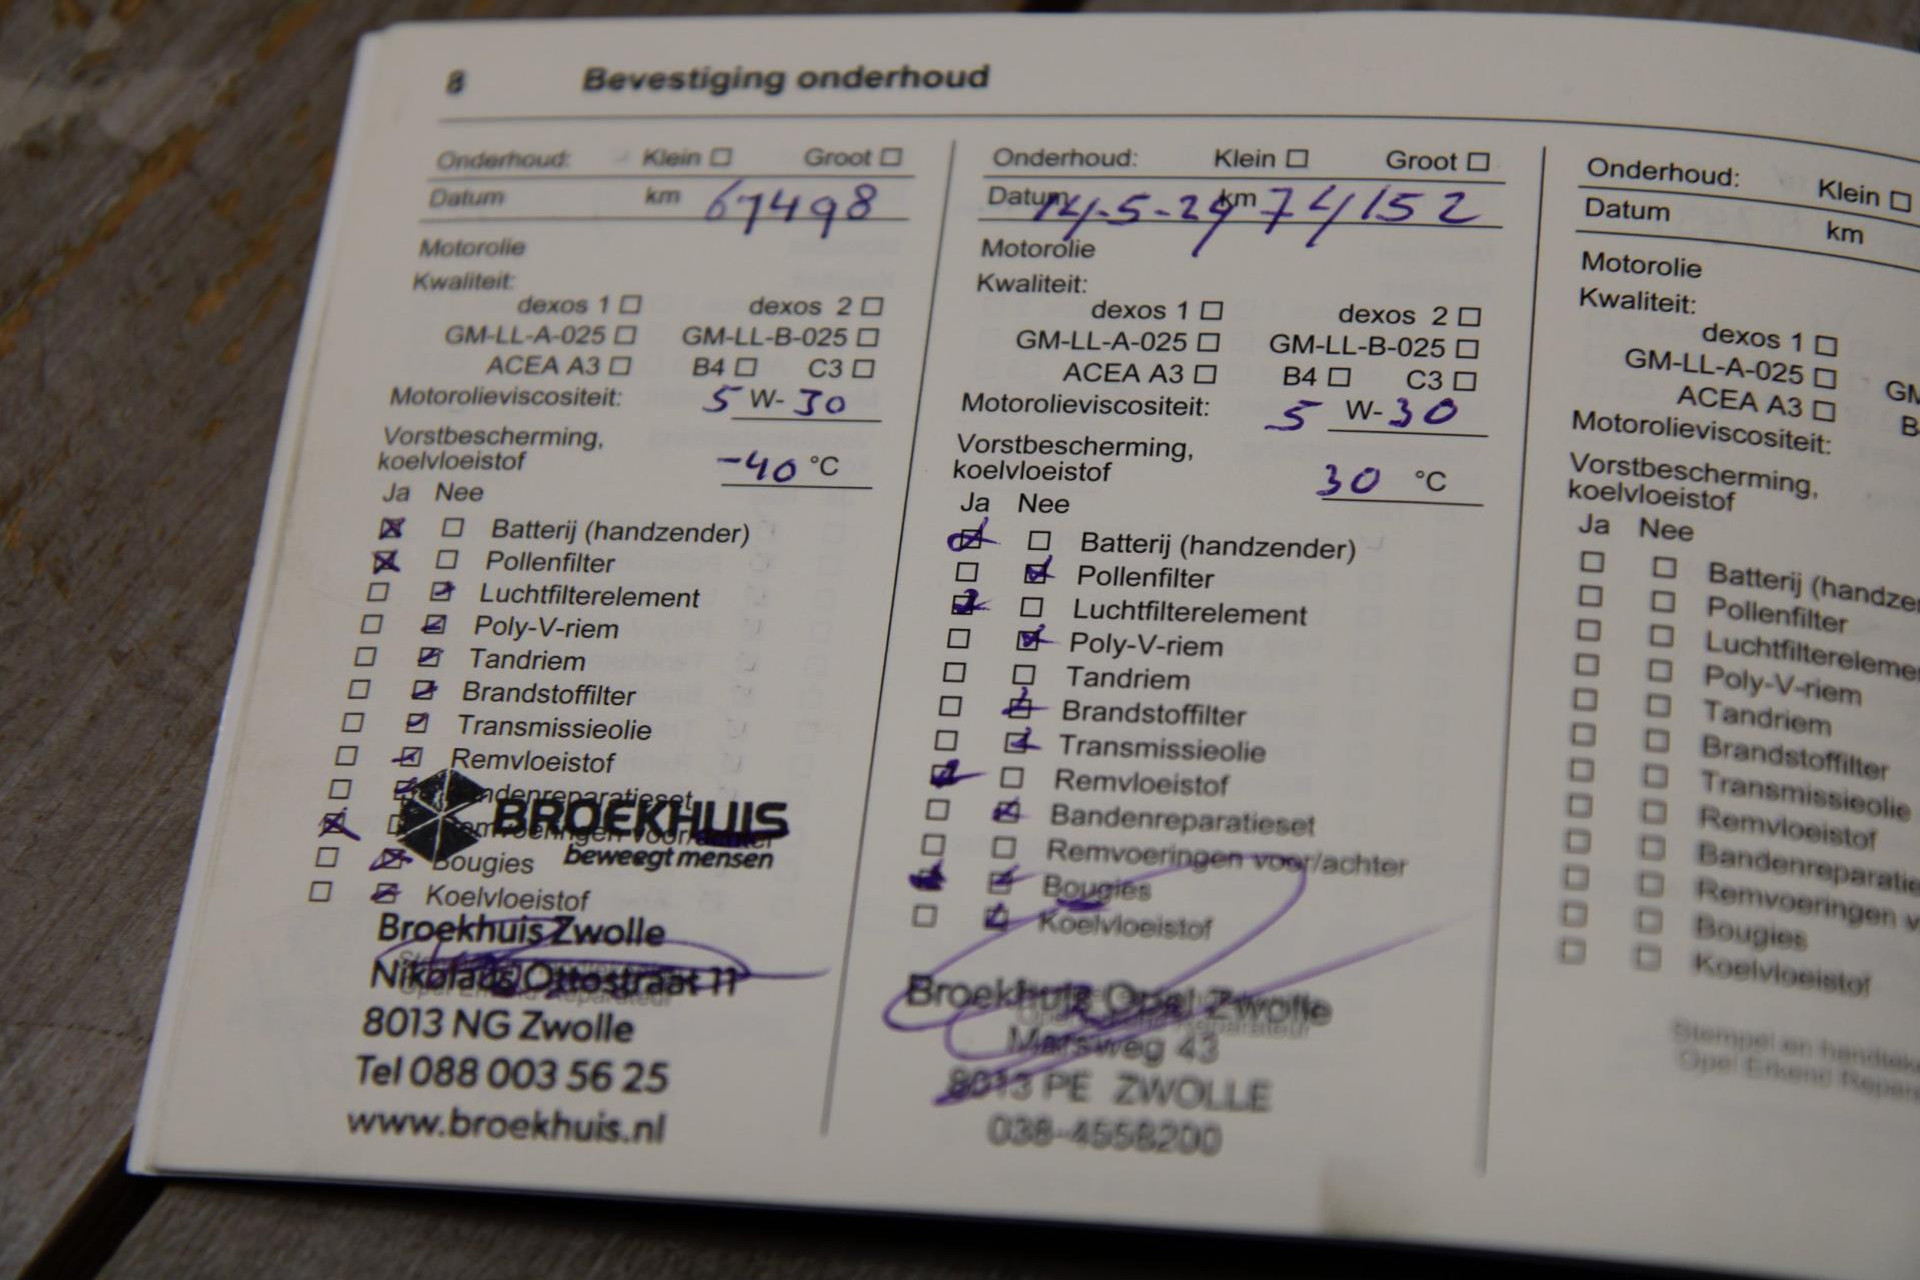 8 Bevestiging onderhoud
Onderhoud: Klein Groot
Datum km 67498
Motorolie
Kwaliteit:
dexos 1 dexos 2
GM-LL-A-025 GM-LL-B-025
ACEA A3 B4 C3
Motorolieviscositeit: 5 W-30
Vorstbescherming,
koelvloeistof -40 °C
Ja Nee
Batterij (handzender)
Pollenfilter
Luchtfilterelement
Poly-V-riem
Tandriem
Brandstoffilter
Transmissieolie
Remvloeistof
BROEKHUIS
beweegt mensen
Bougies
Koelvloeistof
Broekhuis Zwolle
Nikolaus Ottostraat 11
8013 NG Zwolle
Tel 088 003 56 25
www.broekhuis.nl
Onderhoud: Klein Groot
Datum 14-5-24 km 74152
Motorolie
Kwaliteit:
dexos 1 dexos 2
GM-LL-A-025 GM-LL-B-025
ACEA A3 B4 C3
Motorolieviscositeit: 5 W-30
Vorstbescherming,
koelvloeistof 30 °C
Ja Nee
Batterij (handzender)
Pollenfilter
Luchtfilterelement
Poly-V-riem
Tandriem
Brandstoffilter
Transmissieolie
Remvloeistof
Bandenreparatieset
Remvoeringen voor/achter
Bougies
Koelvloeistof
Broekhuis Opel Zwolle
Marsweg 43
8013 PE ZWOLLE
038-4558200
Onderhoud: Klein
Datum km
Motorolie
Kwaliteit:
dexos 1
GM-LL-A-025 GM
ACEA A3 B
Motorolieviscositeit:
Vorstbescherming,
koelvloeistof
Ja Nee
Batterij (handze
Pollenfilter
Luchtfiltereleme
Poly-V-riem
Tandriem
Brandstoffilter
Transmissieolie
Remvloeistof
Bandenreparatie
Remvoeringen v
Bougies
Koelvloeistof
Stempel en handteke
Opel Erkend Repara